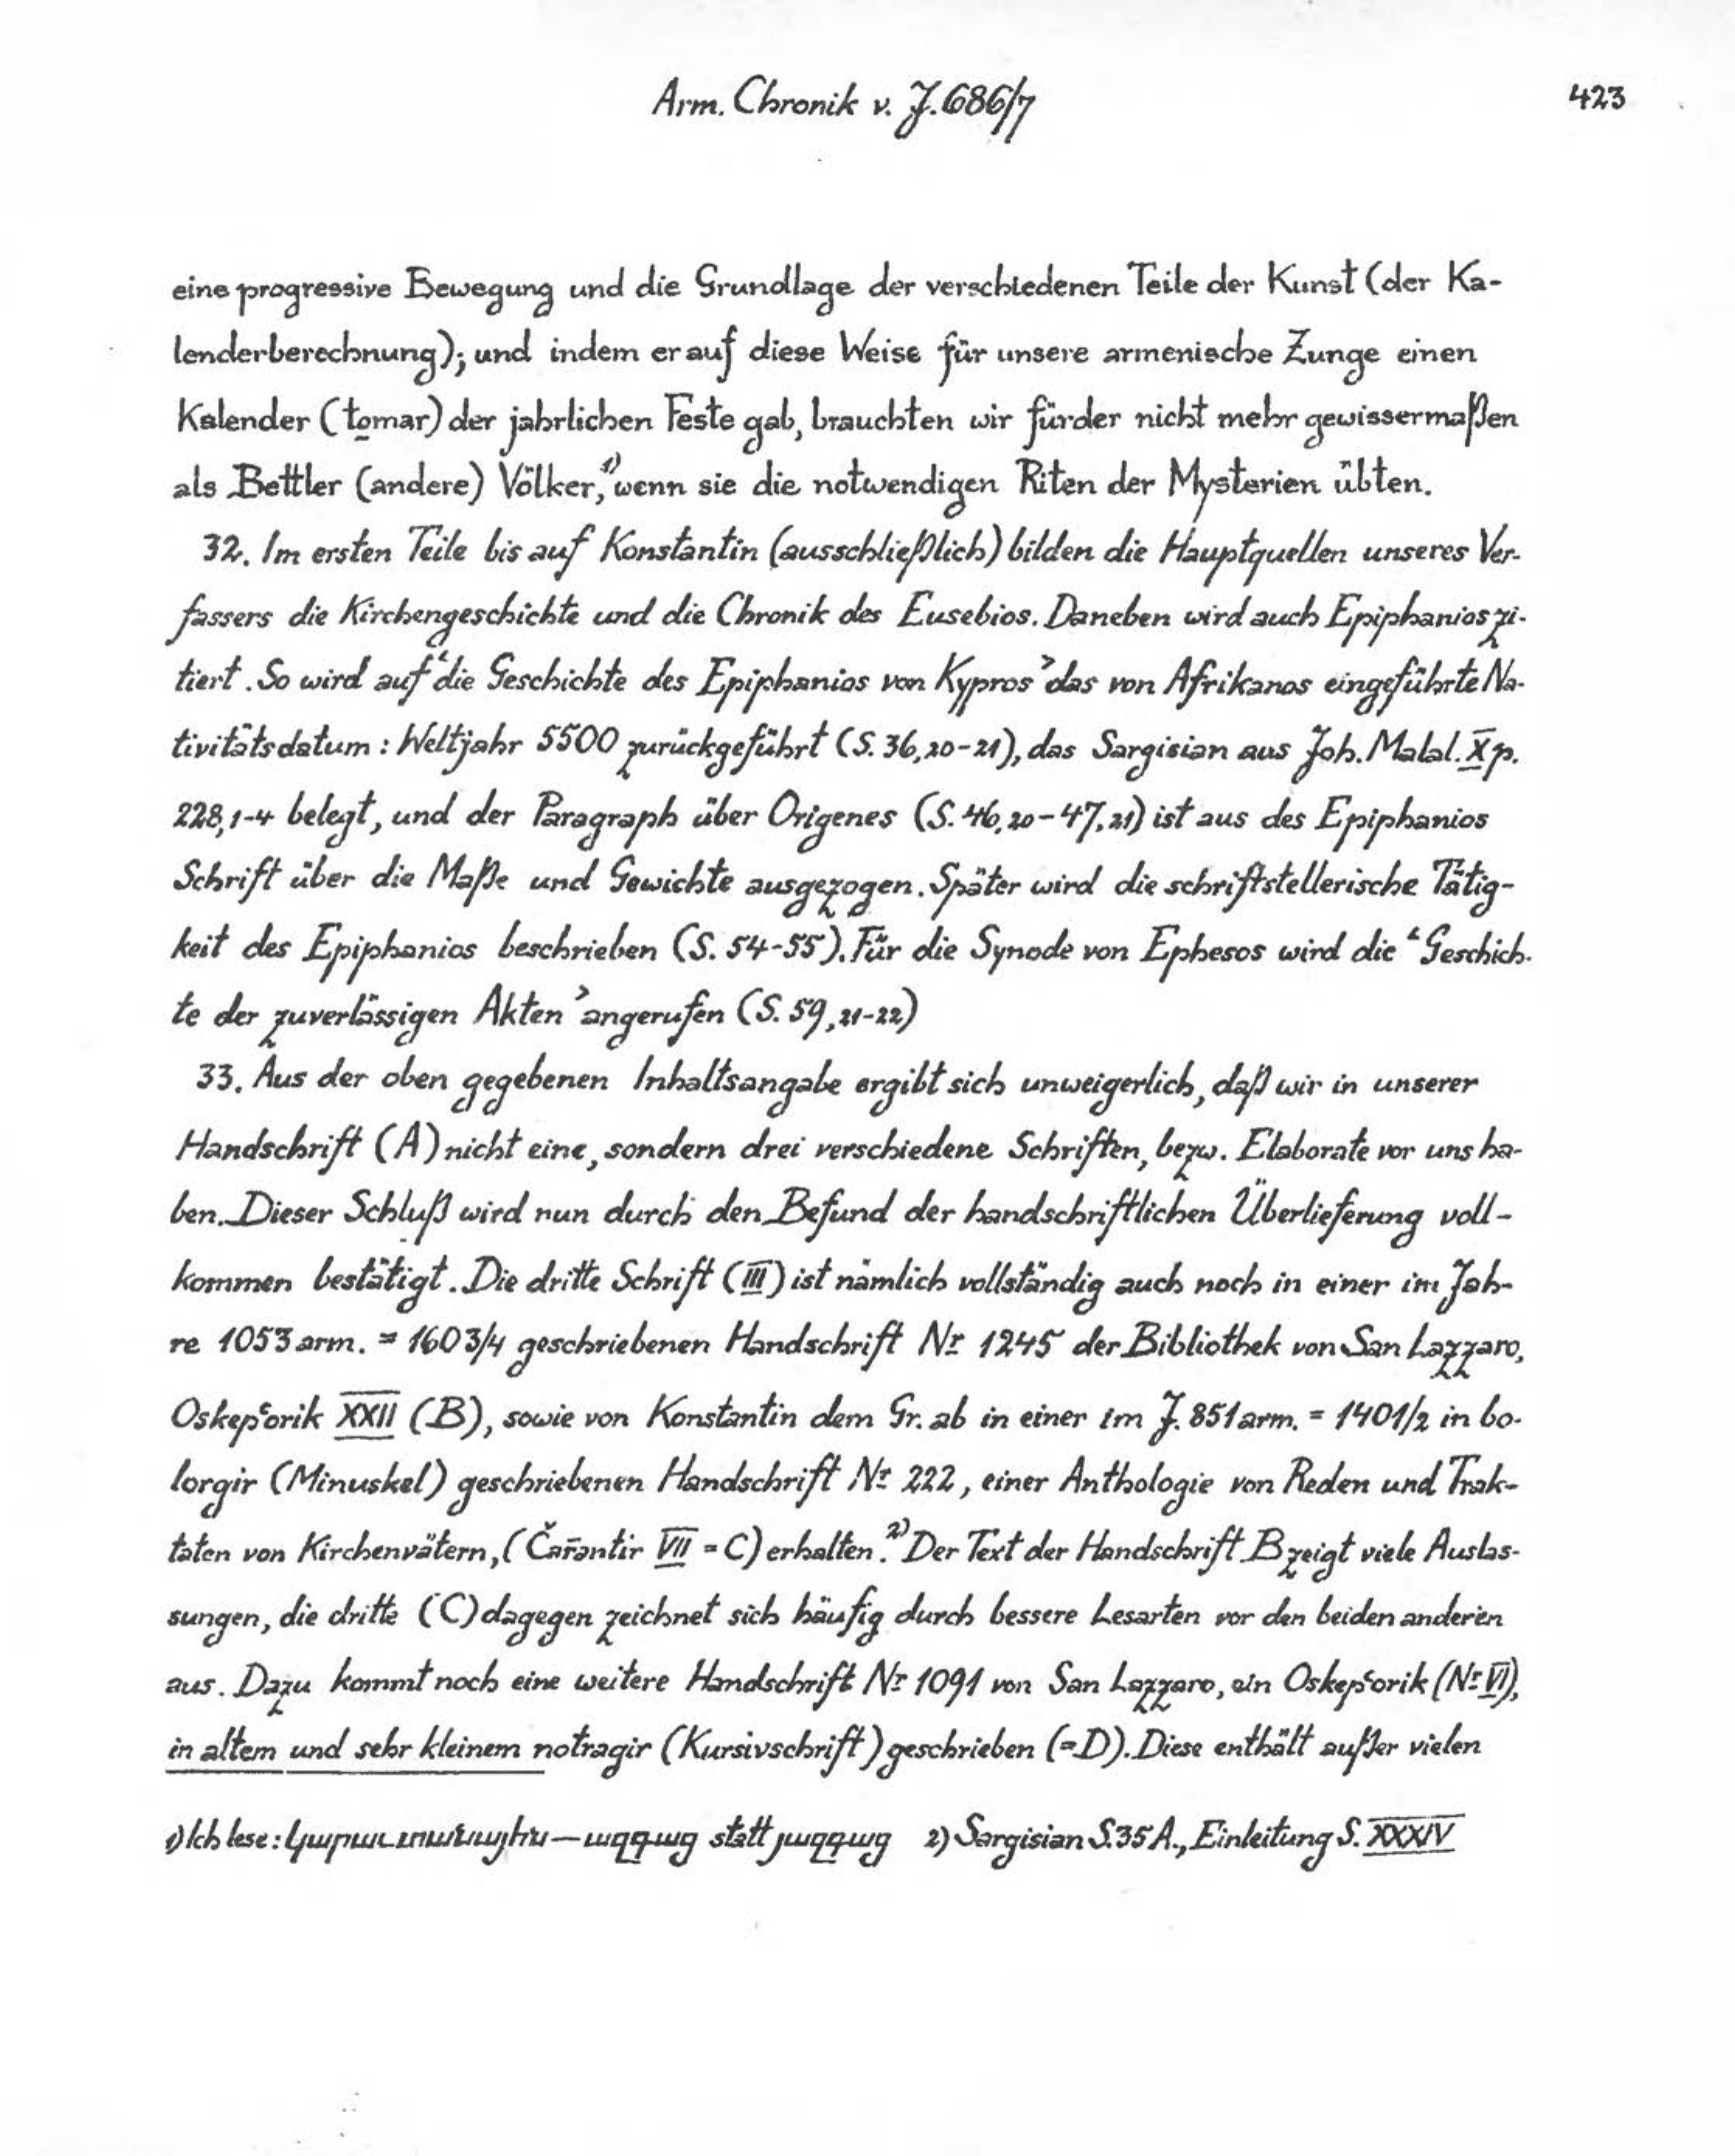 Arm. Chronik v. J. 686/7
423
eine progressive Bewegung und die Grundlage der verschiedenen Teile der Kunst (der Ka-
lenderberechnung); und indem er auf diese Weise für unsere armenische Zunge einen
Kalender (tomar) der jahrlichen Feste gab, brauchten wir fürder nicht mehr gewissermaßen
als Bettler (andere) Völker,¹⁾ wenn sie die notwendigen Riten der Mysterien übten.
32. Im ersten Teile bis auf Konstantin (ausschließlich) bilden die Hauptquellen unseres Ver-
fassers die Kirchengeschichte und die Chronik des Eusebios. Daneben wird auch Epiphanios zi-
tiert. So wird auf ‘die Geschichte des Epiphanios von Kypros’ das von Afrikanos eingeführte Na-
tivitätsdatum: Weltjahr 5500 zurückgeführt (S. 36,20-21), das Sargisian aus Joh. Malal. X p.
228,1-4 belegt, und der Paragraph über Origenes (S. 46,20-47,21) ist aus des Epiphanios
Schrift über die Maße und Gewichte ausgezogen. Später wird die schriftstellerische Tätig-
keit des Epiphanios beschrieben (S. 54-55). Für die Synode von Ephesos wird die ‘Geschich-
te der zuverlässigen Akten’ angerufen (S. 59,21-22)
33. Aus der oben gegebenen Inhaltsangabe ergibt sich unweigerlich, daß wir in unserer
Handschrift (A) nicht eine, sondern drei verschiedene Schriften, bezw. Elaborate vor uns ha-
ben. Dieser Schluß wird nun durch den Befund der handschriftlichen Überlieferung voll-
kommen bestätigt. Die dritte Schrift (III) ist nämlich vollständig auch noch in einer im Jah-
re 1053 arm. = 1603/4 geschriebenen Handschrift Nr 1245 der Bibliothek von San Lazzaro,
Oskepʿorik XXII (B), sowie von Konstantin dem Gr. ab in einer im J. 851 arm. = 1401/2 in bo-
lorgir (Minuskel) geschriebenen Handschrift Nr 222, einer Anthologie von Reden und Trak-
taten von Kirchenvätern, (Čar̄antir VII = C) erhalten.²⁾ Der Text der Handschrift B zeigt viele Auslas-
sungen, die dritte (C) dagegen zeichnet sich häufig durch bessere Lesarten vor den beiden anderen
aus. Dazu kommt noch eine weitere Handschrift Nr 1091 von San Lazzaro, ein Oskepʿorik (Nr VI),
in altem und sehr kleinem notragir (Kursivschrift) geschrieben (=D). Diese enthält außer vielen
1) Ich lese: — ազգաց statt յազգաց 2) Sargisian S. 35 A., Einleitung S. XXXIV